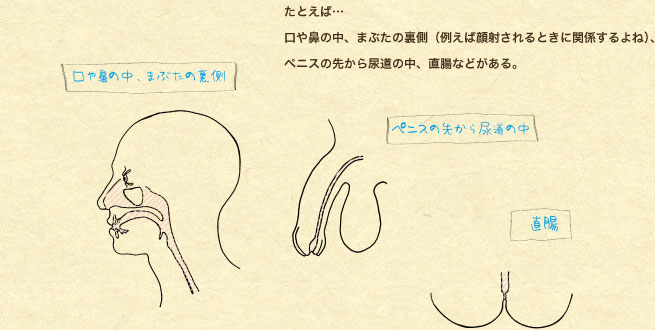 たとえば…
口や鼻の中、まぶたの裏側（例えば顔射されるときに関係するよね）、
ペニスの先から尿道の中、直腸などがある。
口や鼻の中、まぶたの裏側
ペニスの先から尿道の中
直腸